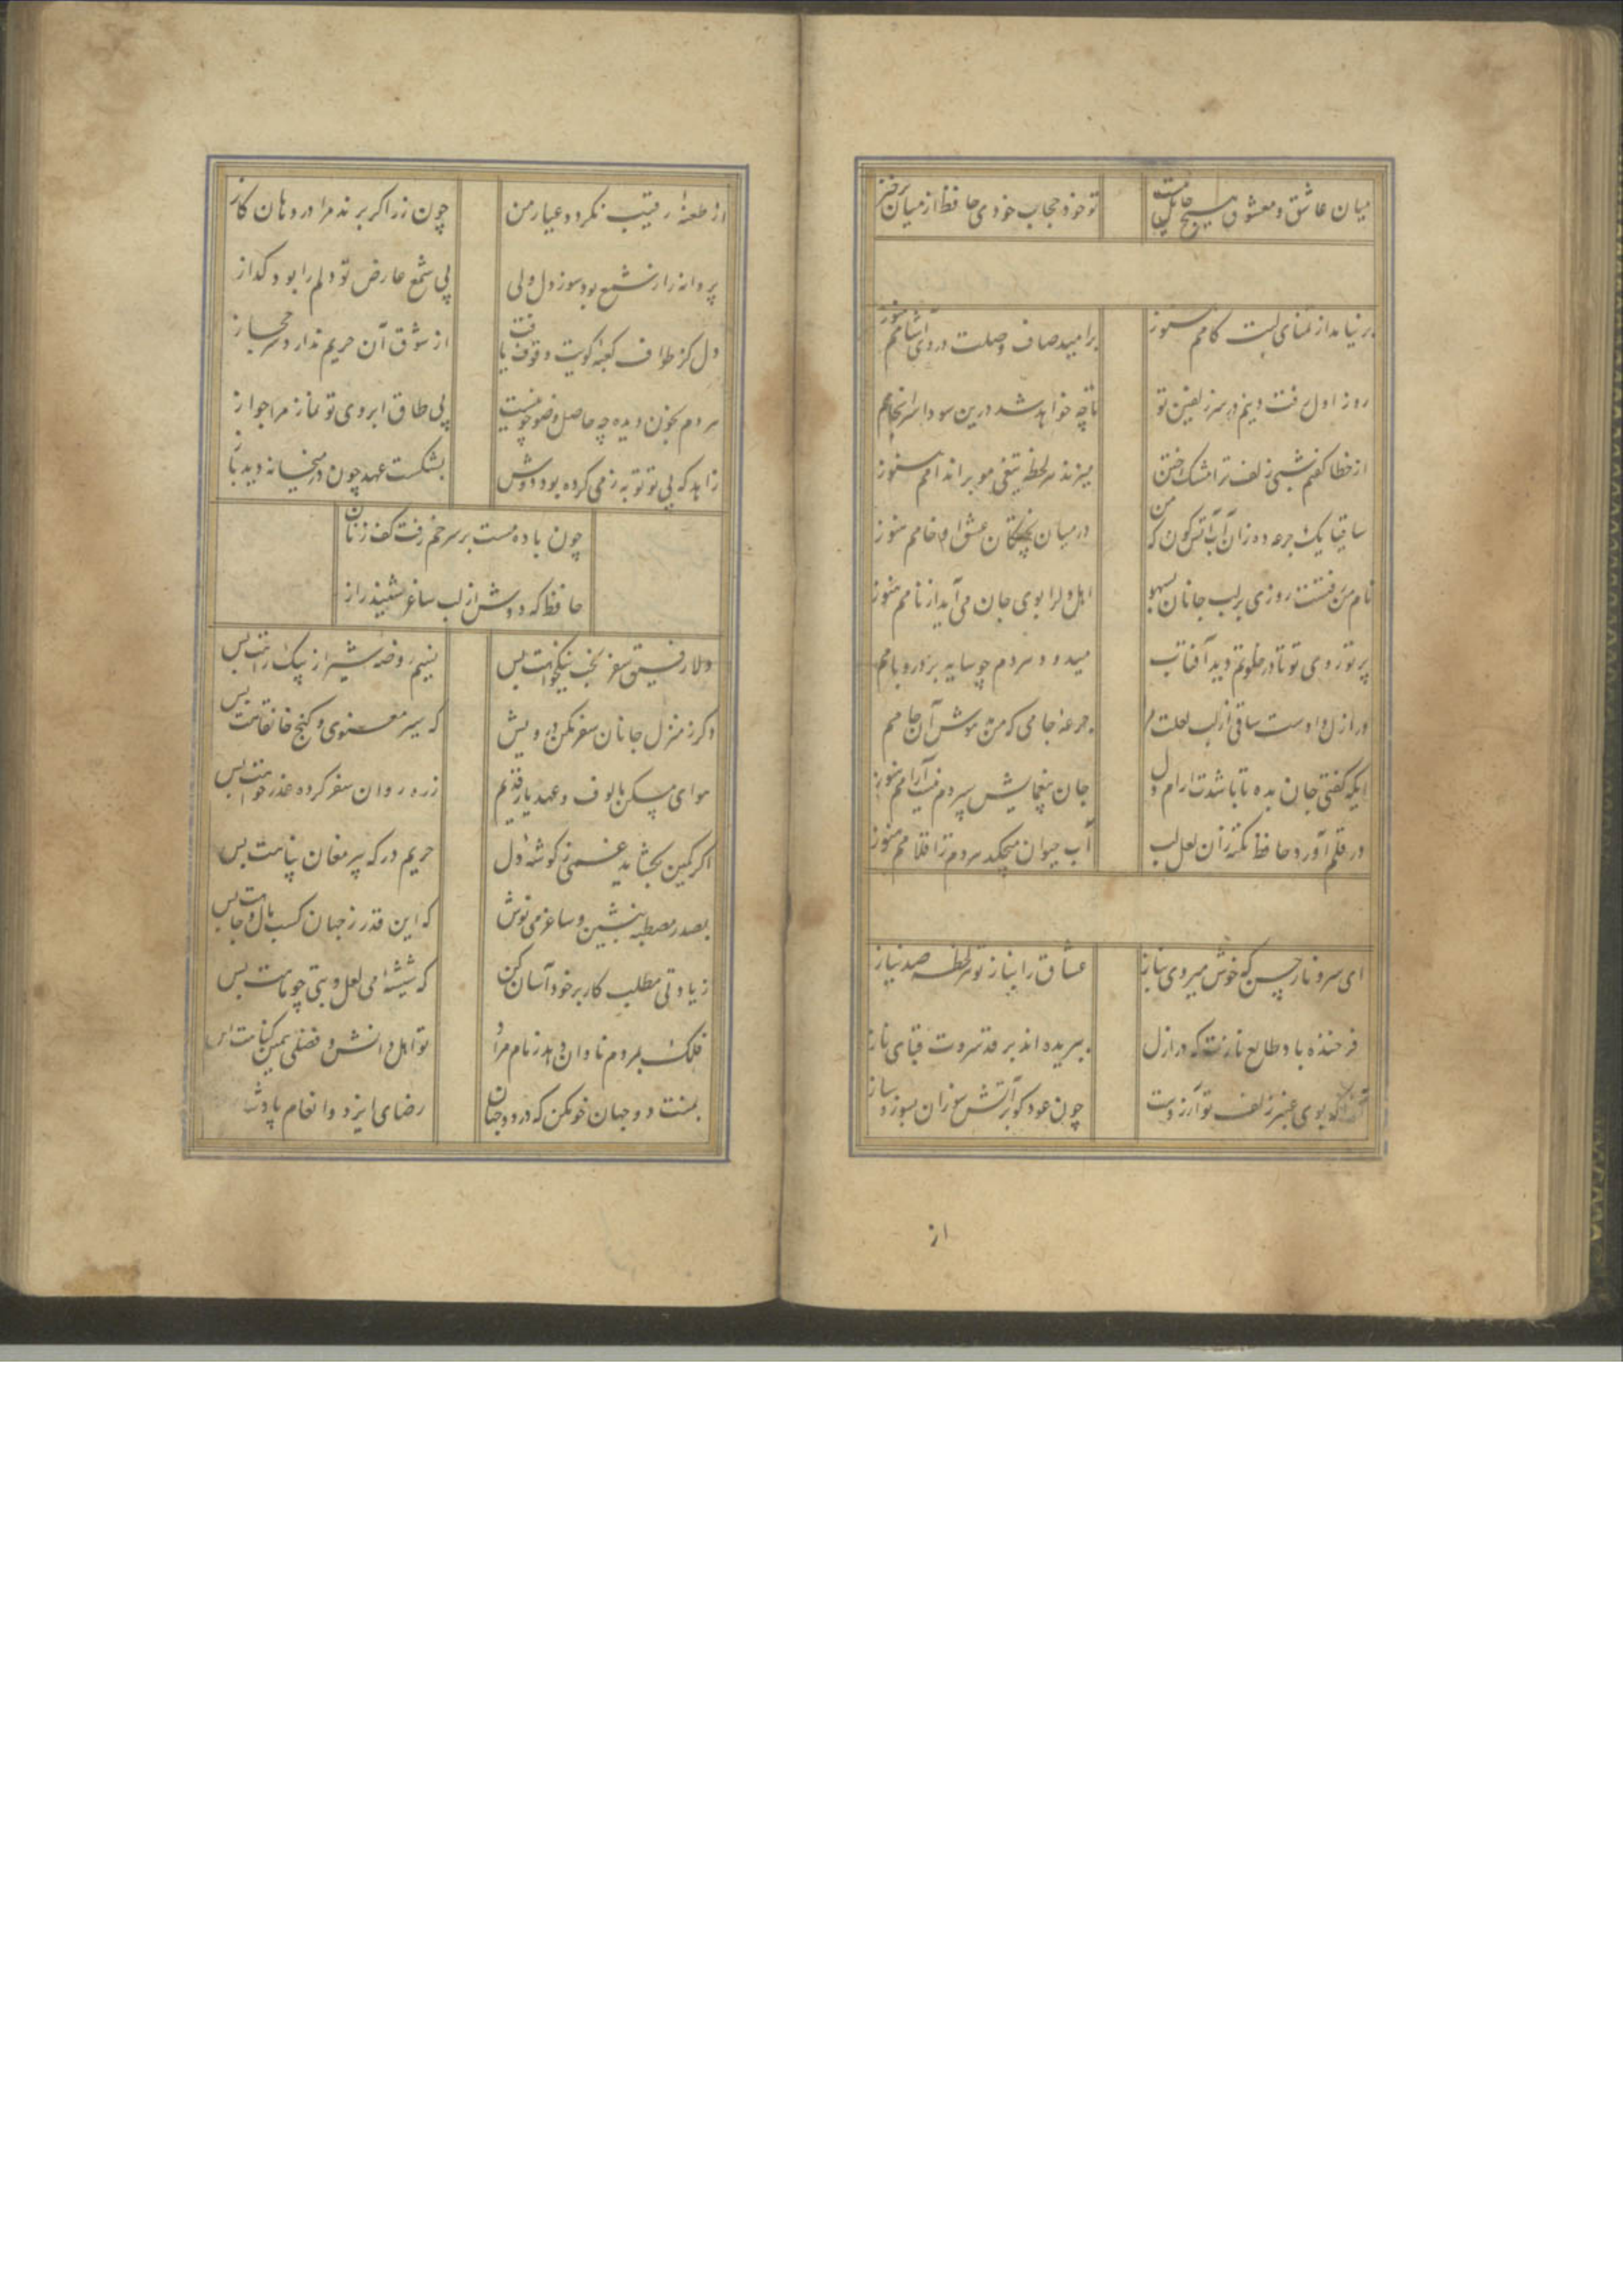 میان عاشق و معشوق هیچ حایل نیست
تو خود حجاب خودی حافظ از میان برخیز
برنیامد از تمنای لبت کامم هنوز
بر امید صاف وصلت دردی آشامم هنوز
روز اول رفت دینم در سر زلفین تو
تا چه خواهد شد درین سودا سرانجامم
از خطا گفتم شبی زلف ترا مشک ختن
میزند هر لحظه تیغی مو بر اندامم هنوز
ساقیا یک جرعه ده زان آب آتش گون که من
در میان پختکان عشق او خامم هنوز
نام من رفتست روزی بر لب جانان بسهو
اهل دلرا بوی جان می آید از نامم هنوز
پرتو روی تو تا در خلوتم دید آفتاب
میدود هر دم چو سایه بر در و بامم
در ازل دادست ساقی از لب لعلت
جرعه جامی که من مدهوش آن جامم
ایکه گفتی جان بده تا باشدت ارام دل
جان بغمهایش سپردم نیست آرامم هنوز
در قلم آورد حافظ نکته زان لعل لب
آب حیوان میچکد هر دم ز اقلامم هنوز
ای سرو ناز حسن که خوش میروی بناز
عشاق را بناز تو هر لحظه صد نیاز
فرخنده باد طالع نازت که در ازل
ببریده اند بر قد سروت قبای ناز
آنرا که بوی عنبر زلف تو آرزوست
چون عود گو بر آتش سوزان بسوز و ساز
از
از طعنه رقیب نکردد عیار من
چون زر اکر برند مرا در دهان کاز
پروانه را ز شمع بود سوز دل ولی
بی شمع عارض تو دلم را بود کداز
دل کز طواف کعبه کویت وقوف یافت
از شوق آن حریم ندارد سر حجاز
هر دم بخون دیده چه حاصل وضو چو نیست
بی طاق ابروی تو نماز مرا جواز
زاهد که بی تو توبه ز می کرده بود دوش
بشکست عهد چون در میخانه دید باز
چون باده مست بر سر خم رفت کف زنان
حافظ که دوش از لب ساغر شنید راز
دلا رفیق سفر بخت نیکخواهت بس
نسیم روضه شیراز پیک راهت بس
دکر ز منزل جانان سفر مکن درویش
که سیر معنوی و کنج خانقاهت بس
هوای مسکن مالوف و عهد یار قدیم
ز ره روان سفر کرده عذر خواهت بس
اکر کمین بکشاید غمی ز کوشه دل
حریم درکه پیر مغان پناهت بس
بصدر مصطبه بنشین و ساغر می نوش
که این قدر ز جهان کسب مال و جاهت بس
زیادتی مطلب کار بر خود آسان کن
که شیشه می لعل و بتی چو ماهت بس
فلک بمردم نادان دهد زمام مراد
تو اهل دانش و فضلی همین کناهت بس
بمنت دو جهان خو مکن که در دو جهان
رضای ایزد و انعام پادشا